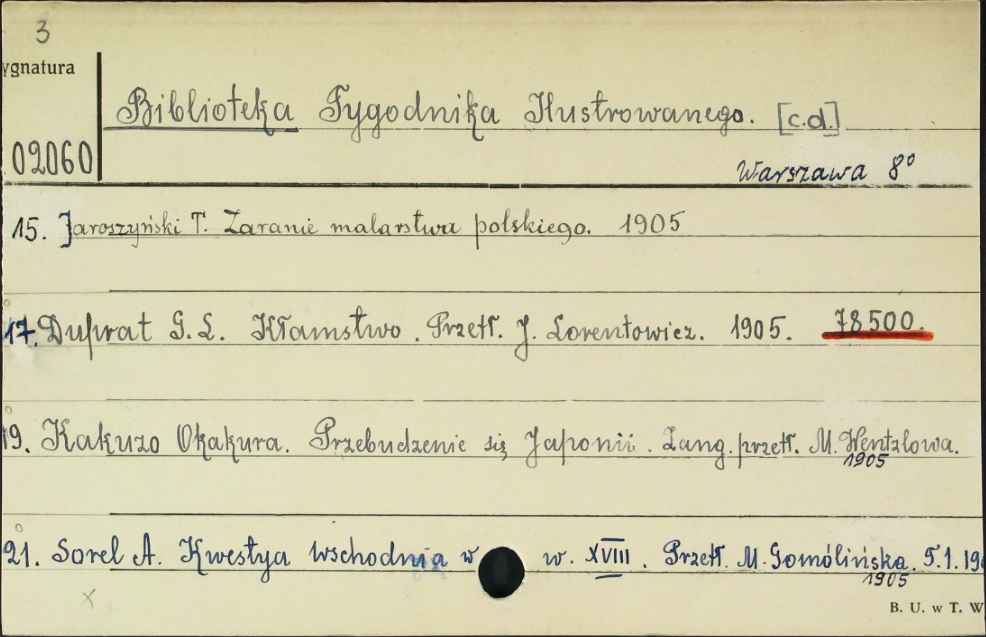 3
ygnatura
Biblioteka Tygodnika Ilustrowanego. [c.d.]
02060
Warszawa 8°
15. Jaroszyński T. Zaranie malarstwa polskiego. 1905
17. Duprat G. L. Kłamstwo. Przetł. J. Lorentowicz. 1905. 78500.
19. Kakuzo Okakura. Przebudzenie się Japonii. Z ang. przetł. M. Wentzlowa.
1905
21. Sorel A. Kwestya wschodnia w w. XVIII. Przetł. M. Gomólińska. T. 1. 190
1905
x
B. U. w T. W